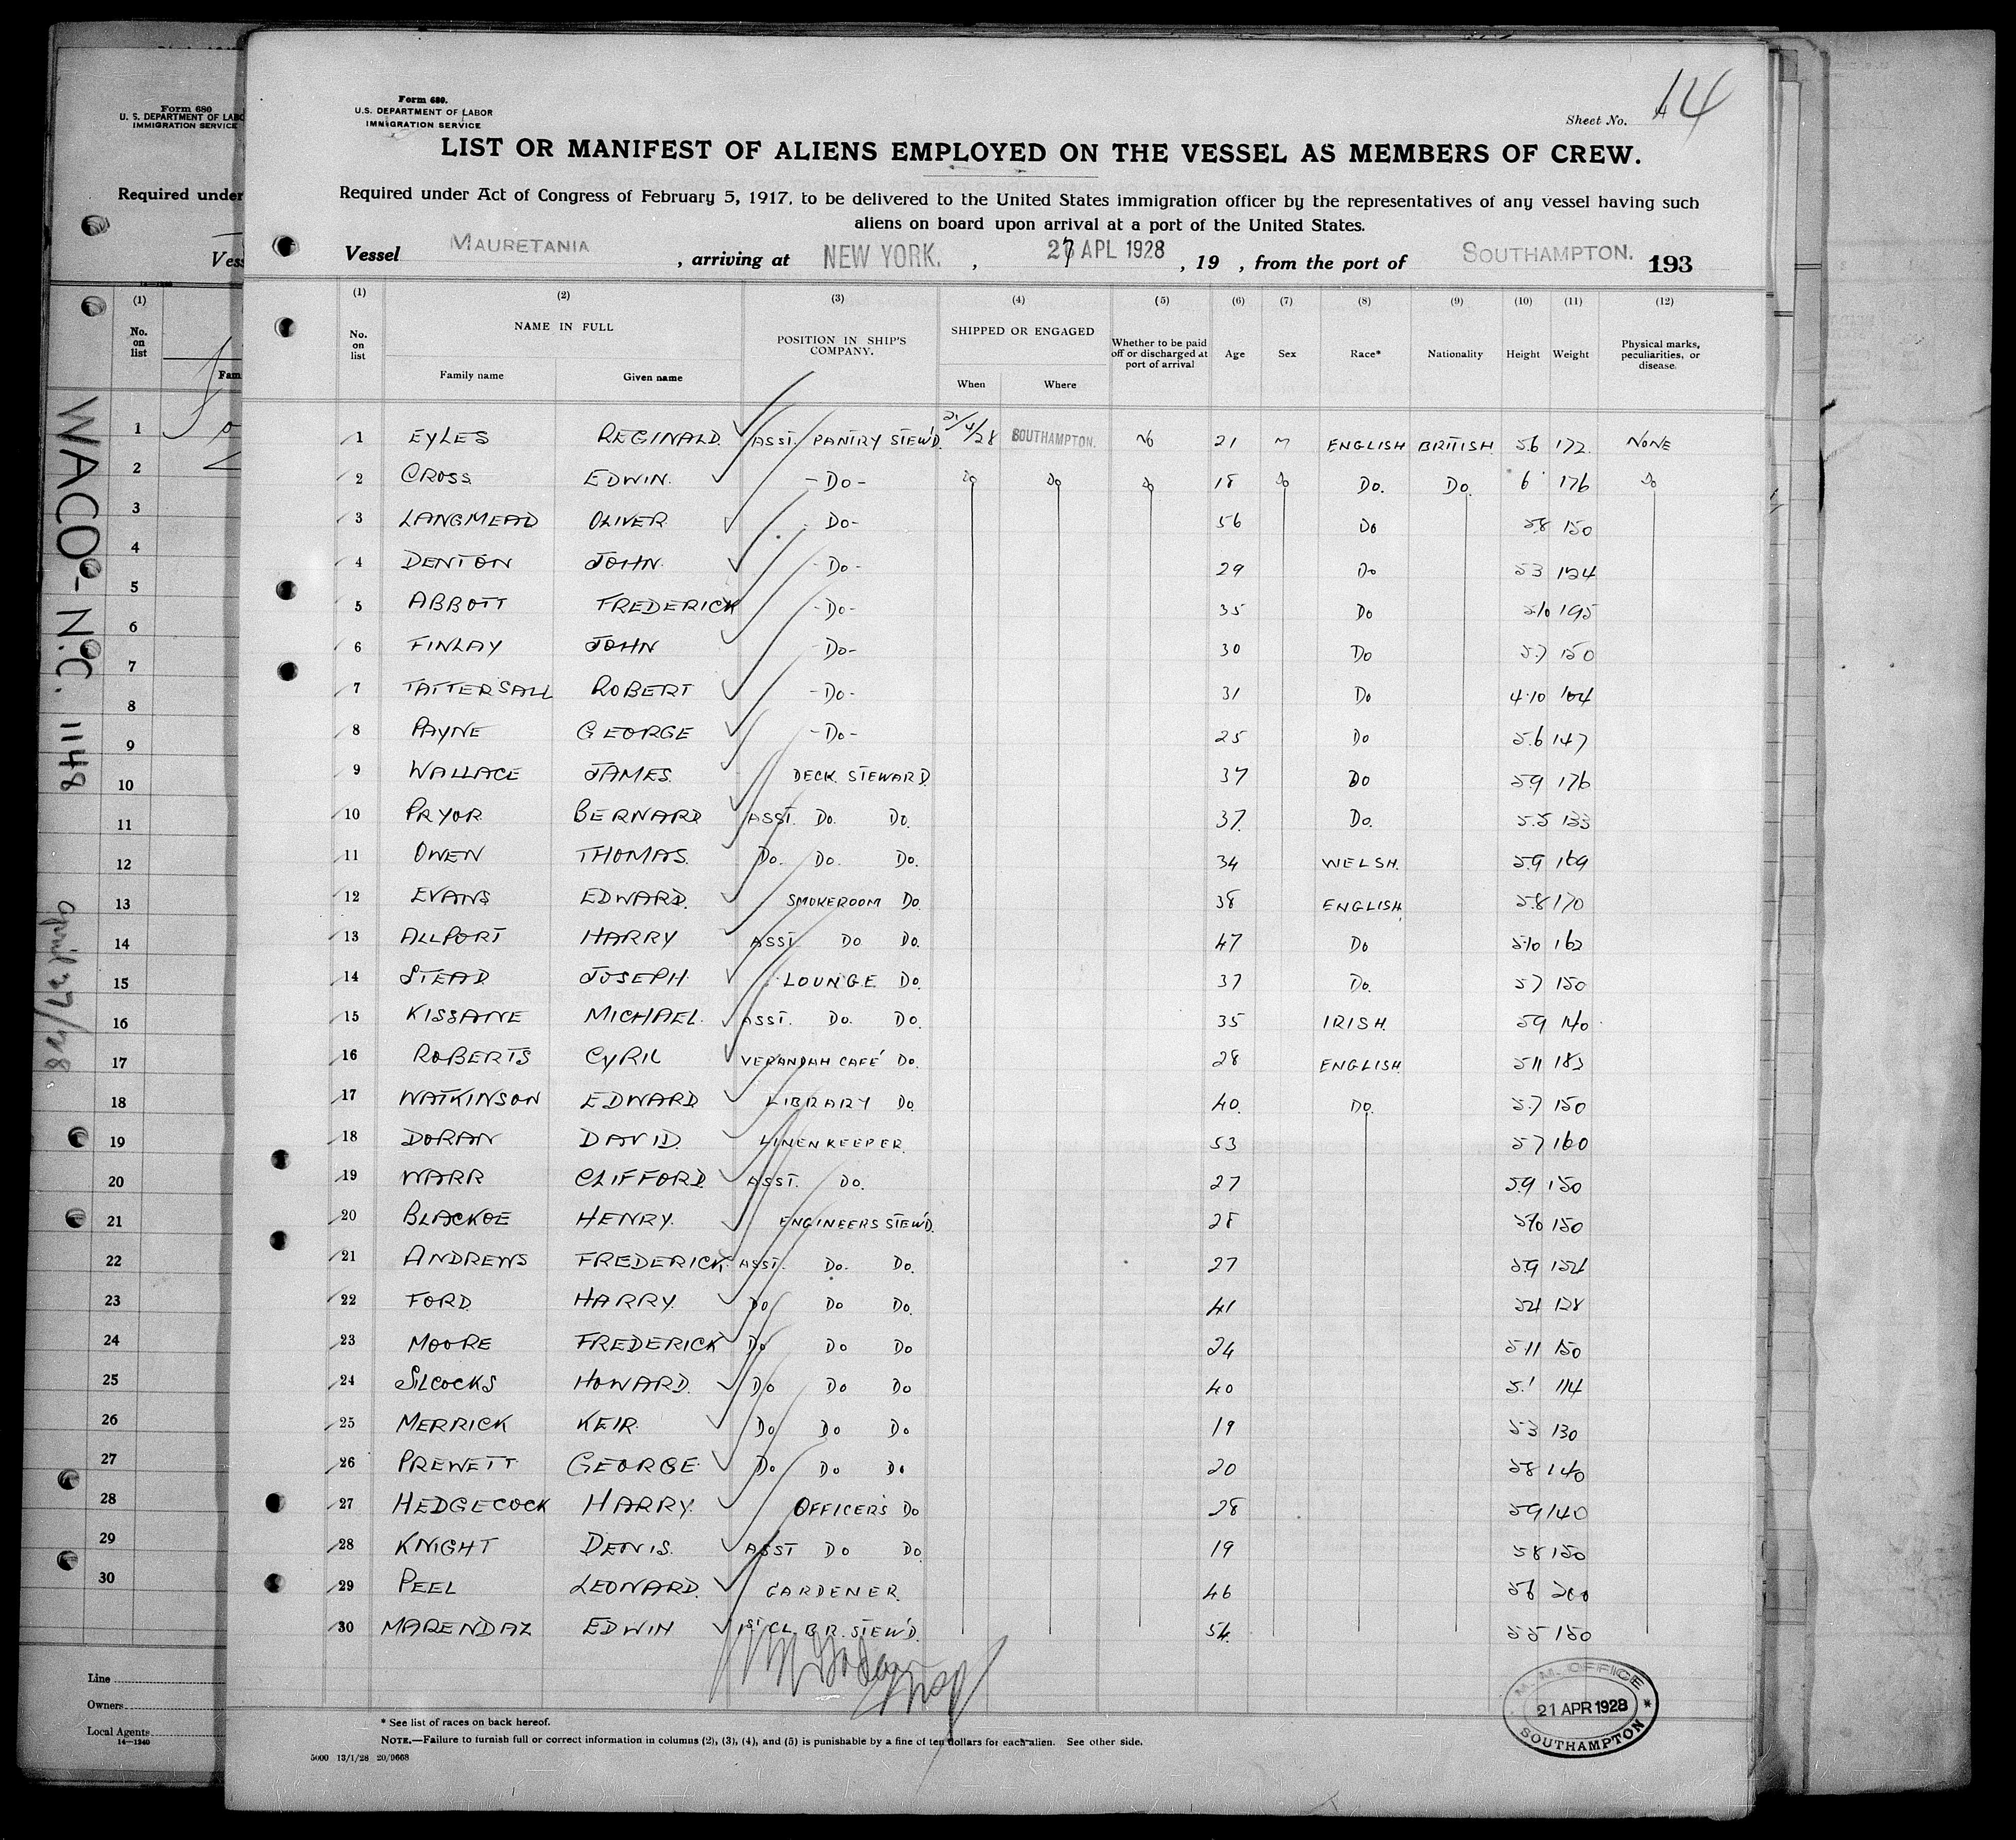 Form 680
U. S. DEPARTMENT OF LABO
IMMIGRATION SERVICE
Required under
Vess
(1)
No. on list
Fam
1
2
3
4
5
6
7
8
9
10
11
12
13
14
15
16
17
18
19
20
21
22
23
24
25
26
27
28
29
30
Line
Owners
Local Agents
14—1240
WACO - N.C. 1148
April 27/28
Form 680.
U.S. DEPARTMENT OF LABOR
IMMIGRATION SERVICE
Sheet No. 14
LIST OR MANIFEST OF ALIENS EMPLOYED ON THE VESSEL AS MEMBERS OF CREW.
Required under Act of Congress of February 5, 1917, to be delivered to the United States immigration officer by the representatives of any vessel having such
aliens on board upon arrival at a port of the United States.
Vessel MAURETANIA, arriving at NEW YORK. , 27 APL 1928, 19 , from the port of SOUTHAMPTON. 193
(1) (2) (3) (4) (5) (6) (7) (8) (9) (10) (11) (12)
No. on list NAME IN FULL POSITION IN SHIP'S COMPANY. SHIPPED OR ENGAGED Whether to be paid off or discharged at port of arrival Age Sex Race* Nationality Height Weight Physical marks, peculiarities, or disease.
Family name Given name When Where
1 EYLES REGINALD. ASST. PANTRY STEW'D. 21/4/28 SOUTHAMPTON. No 21 M ENGLISH BRITISH. 5.6 172. NONE
2 CROSS EDWIN. - Do - Do Do Do 18 Do Do. Do. 6 176 Do
3 LANGMEAD OLIVER Do- 56 Do 5.8 150
4 DENTON JOHN. - Do - 29 Do 5 3 124
5 ABBOTT FREDERICK - Do - 35 Do 5.10 195
6 FINLAY JOHN Do- 30 Do 5.7 150
7 TATTERSALL ROBERT - Do - 31 Do 4.10 104
8 PAYNE GEORGE - Do - 25 Do 5.6 147
9 WALLACE JAMES. DECK. STEWARD. 37 Do 5.9 176
10 PRYOR BERNARD ASST. Do. Do. 37. Do. 5.5 133
11 OWEN THOMAS. Do. Do. Do. 34 WELSH. 5.9 169
12 EVANS EDWARD. SMOKEROOM Do. 38 ENGLISH. 5.8 170
13 ALLPORT HARRY ASST. Do Do. 47 Do 5.10 162
14 STEAD JOSEPH LOUNGE Do. 37 Do. 5 7 150
15 KISSANE MICHAEL. ASST. Do. Do. 35 IRISH. 5 9 140
16 ROBERTS CYRIL VERANDAH CAFÉ Do. 28 ENGLISH 5 11 183
17 WATKINSON EDWARD LIBRARY Do 40. Do. 5.7 150
18 DORAN DAVID. LINENKEEPER. 53 5 7 160
19 WARR CLIFFORD. ASST. Do. 27 5.9 150
20 BLACKOE HENRY. ENGINEERS STEW'D. 28 5.10 150
21 ANDREWS FREDERICK. ASST. Do. Do. 27 5.9 154
22 FORD HARRY. Do Do Do. 41 5 4 128
23 MOORE FREDERICK Do Do Do 24 5.11 150
24 SILCOCKS HOWARD. Do Do Do 40 5.1 114
25 MERRICK KEIR. Do Do Do 19 5 3 130
26 PREWETT GEORGE Do Do Do 20 5 8 140
27 HEDGECOCK HARRY. OFFICERS Do 28 5 9 140
28 KNIGHT DENIS. ASST Do Do. 19 5 8 150
29 PEEL LEONARD. GARDENER. 46 5 6 200
30 MARENDAZ EDWIN 1ST CL. B.R. STEW'D. 54. 5 5 150
M.M. OFFICE
21 APR 1928
SOUTHAMPTON
* See list of races on back hereof.
NOTE.—Failure to furnish full or correct information in columns (2), (3), (4), and (5) is punishable by a fine of ten dollars for each alien. See other side.
5000 13/1/28 20/9668